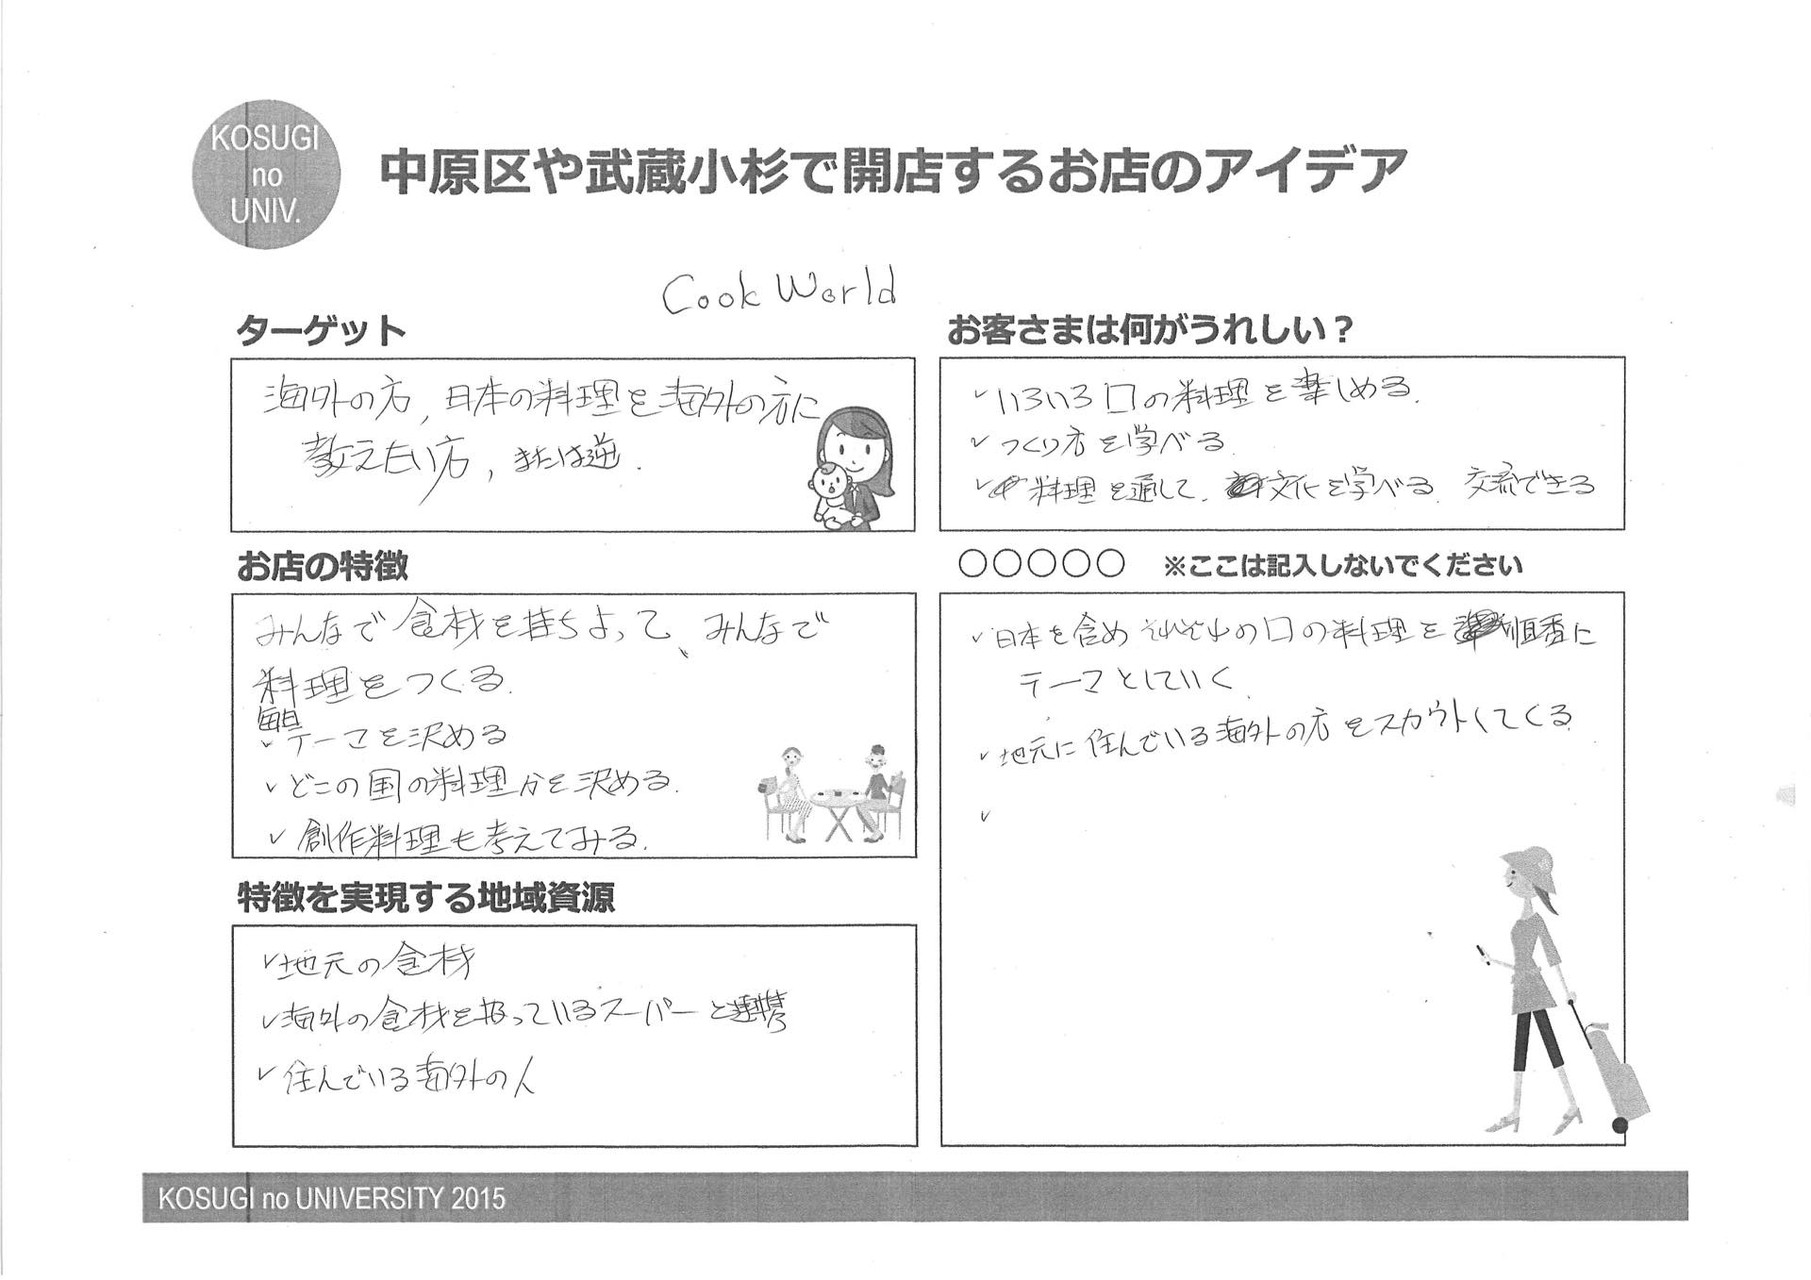 KOSUGI
no
UNIV.
中原区や武蔵小杉で開店するお店のアイデア
Cook World
ターゲット
海外の方, 日本の料理を海外の方に
教えたい方, または逆.
お店の特徴
みんなで食材を持ちよって、みんなで
料理をつくる.
毎日
✓テーマを決める
✓どこの国の料理かを決める.
✓創作料理も考えてみる.
特徴を実現する地域資源
✓地元の食材
✓海外の食材を扱っているスーパーと連携
✓住んでいる海外の人
お客さまは何がうれしい？
✓いろいろ口の料理を楽しめる.
✓つくり方を学べる.
✓料理を通して、文化を学べる. 交流できる
○○○○○ ※ここは記入しないでください
✓日本を含めそれぞれの口の料理を順番に
テーマとしていく.
✓地元に住んでいる海外の方をスカウトしてくる.
✓
KOSUGI no UNIVERSITY 2015